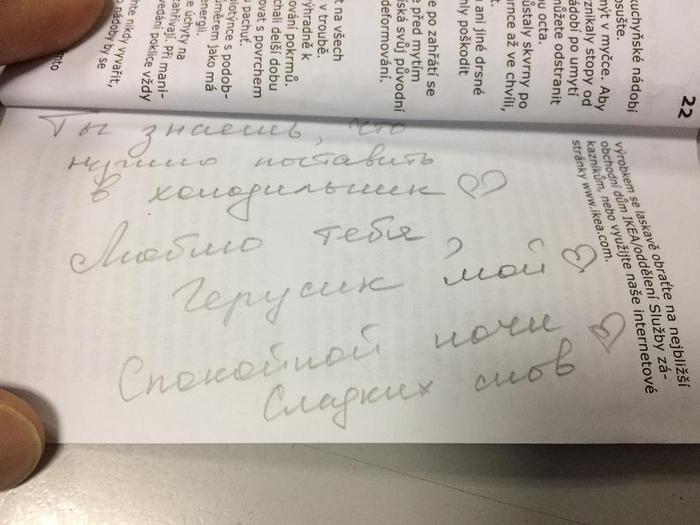 22
kuchyňské nádobí
osušte.
mýt v myčce. Aby
vznikaly stopy od
nádobí po umytí
ou octa.
můžete odstranit
ůstaly skvrny po
rnce až ve chvíli,
t.
ani jiné drsné
hly poškodit
e po zahřátí se
e před mytím
íská svůj původní
deformování.
t na všech
v troubě.
ýhradně k
ování pokrmů.
chali delší dobu
ovat s povrchem
u pachuť.
plotýnce s podob-
ůměrem jako má
energii.
e úchyty na
zahřívají. Při mani-
vedání poklice vždy
nte nikdy vyvařit,
o nádoby by se
výrobkem se laskavě obraťte na nejbližší
obchodní dům IKEA/oddělení Služby zá-
kazníkům, nebo využijte naše internetové
stránky www.ikea.com.
Ты знаешь, что
нужно поставить
в холодильник ♡
Люблю тебя,
Герусик мой ♡
Спокойной ночи ♡
Сладких снов